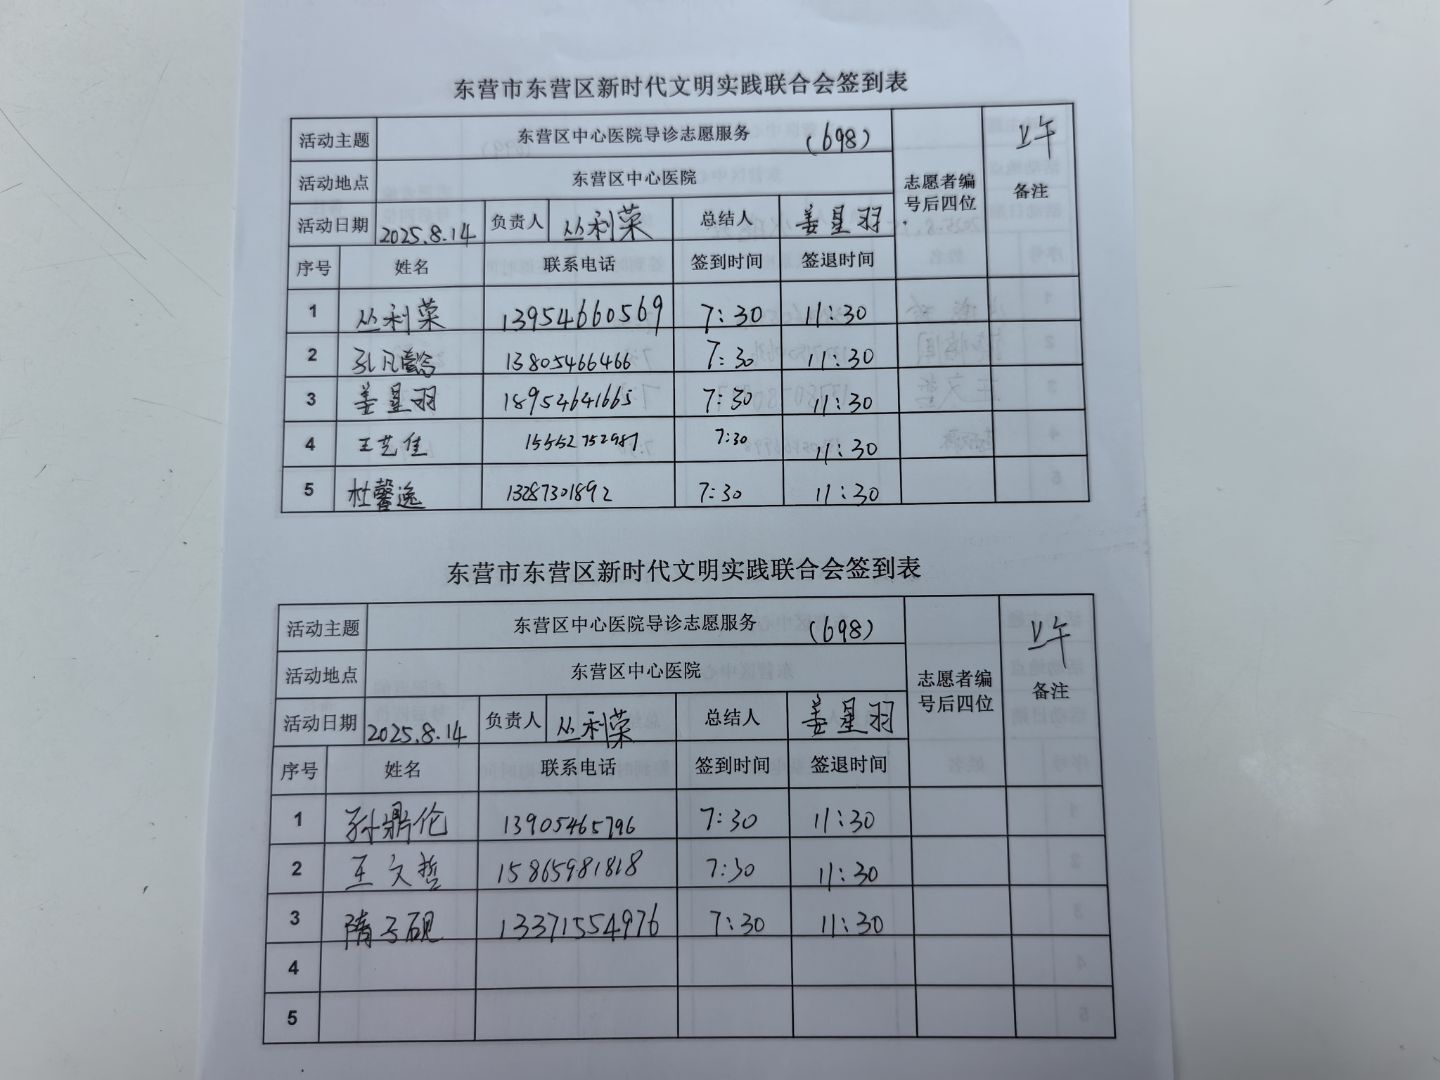 东营市东营区新时代文明实践联合会签到表
活动主题 东营区中心医院导诊志愿服务 (698) 志愿者编号后四位 上午 备注
活动地点 东营区中心医院
活动日期 2025.8.14 负责人 丛利荣 总结人 姜星羽
序号 姓名 联系电话 签到时间 签退时间
1 丛利荣 13954660569 7:30 11:30
2 孔凡 13805466466 7:30 11:30
3 姜星羽 18954641665 7:30 11:30
4 王艺佳 15552752987 7:30 11:30
5 杜馨逸 13287301892 7:30 11:30
东营市东营区新时代文明实践联合会签到表
活动主题 东营区中心医院导诊志愿服务 (698) 志愿者编号后四位 上午 备注
活动地点 东营区中心医院
活动日期 2025.8.14 负责人 丛利荣 总结人 姜星羽
序号 姓名 联系电话 签到时间 签退时间
1 孙鼎伦 13905465796 7:30 11:30
2 王文哲 15865981818 7:30 11:30
3 隋子砚 13371554976 7:30 11:30
4
5